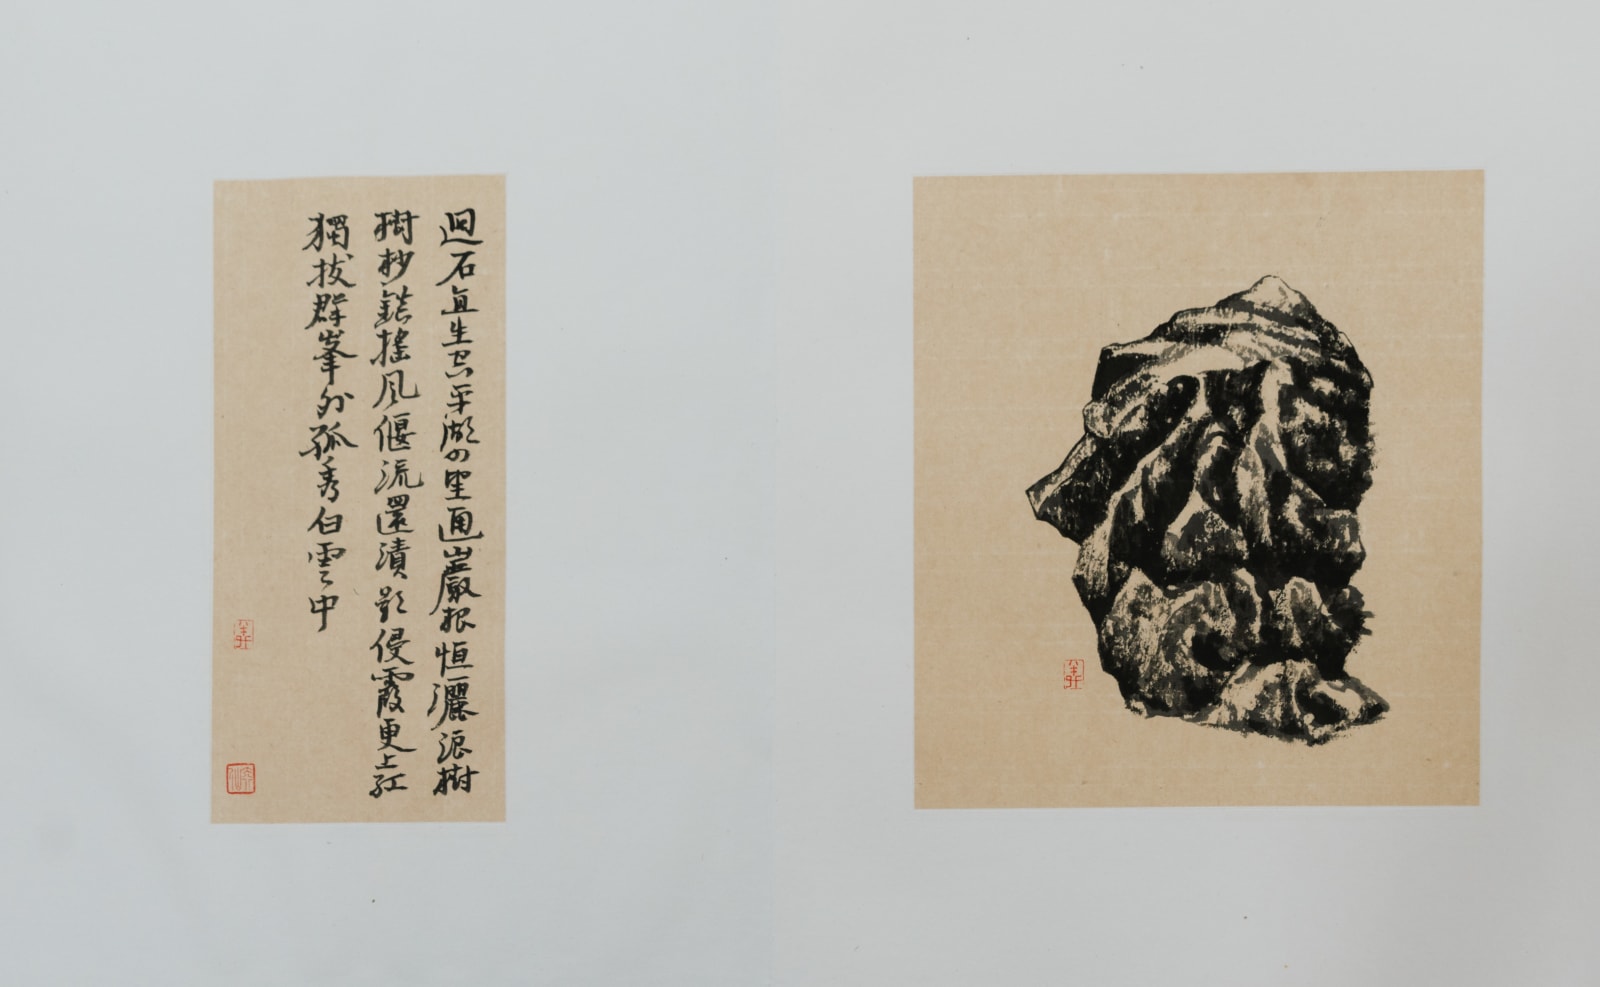 迴石直生空平湖四望通巖根恒灑浪樹
樹杪鎮搖風偃流還漬影侵霞更上紅
獨拔群峯外孤秀白雲中